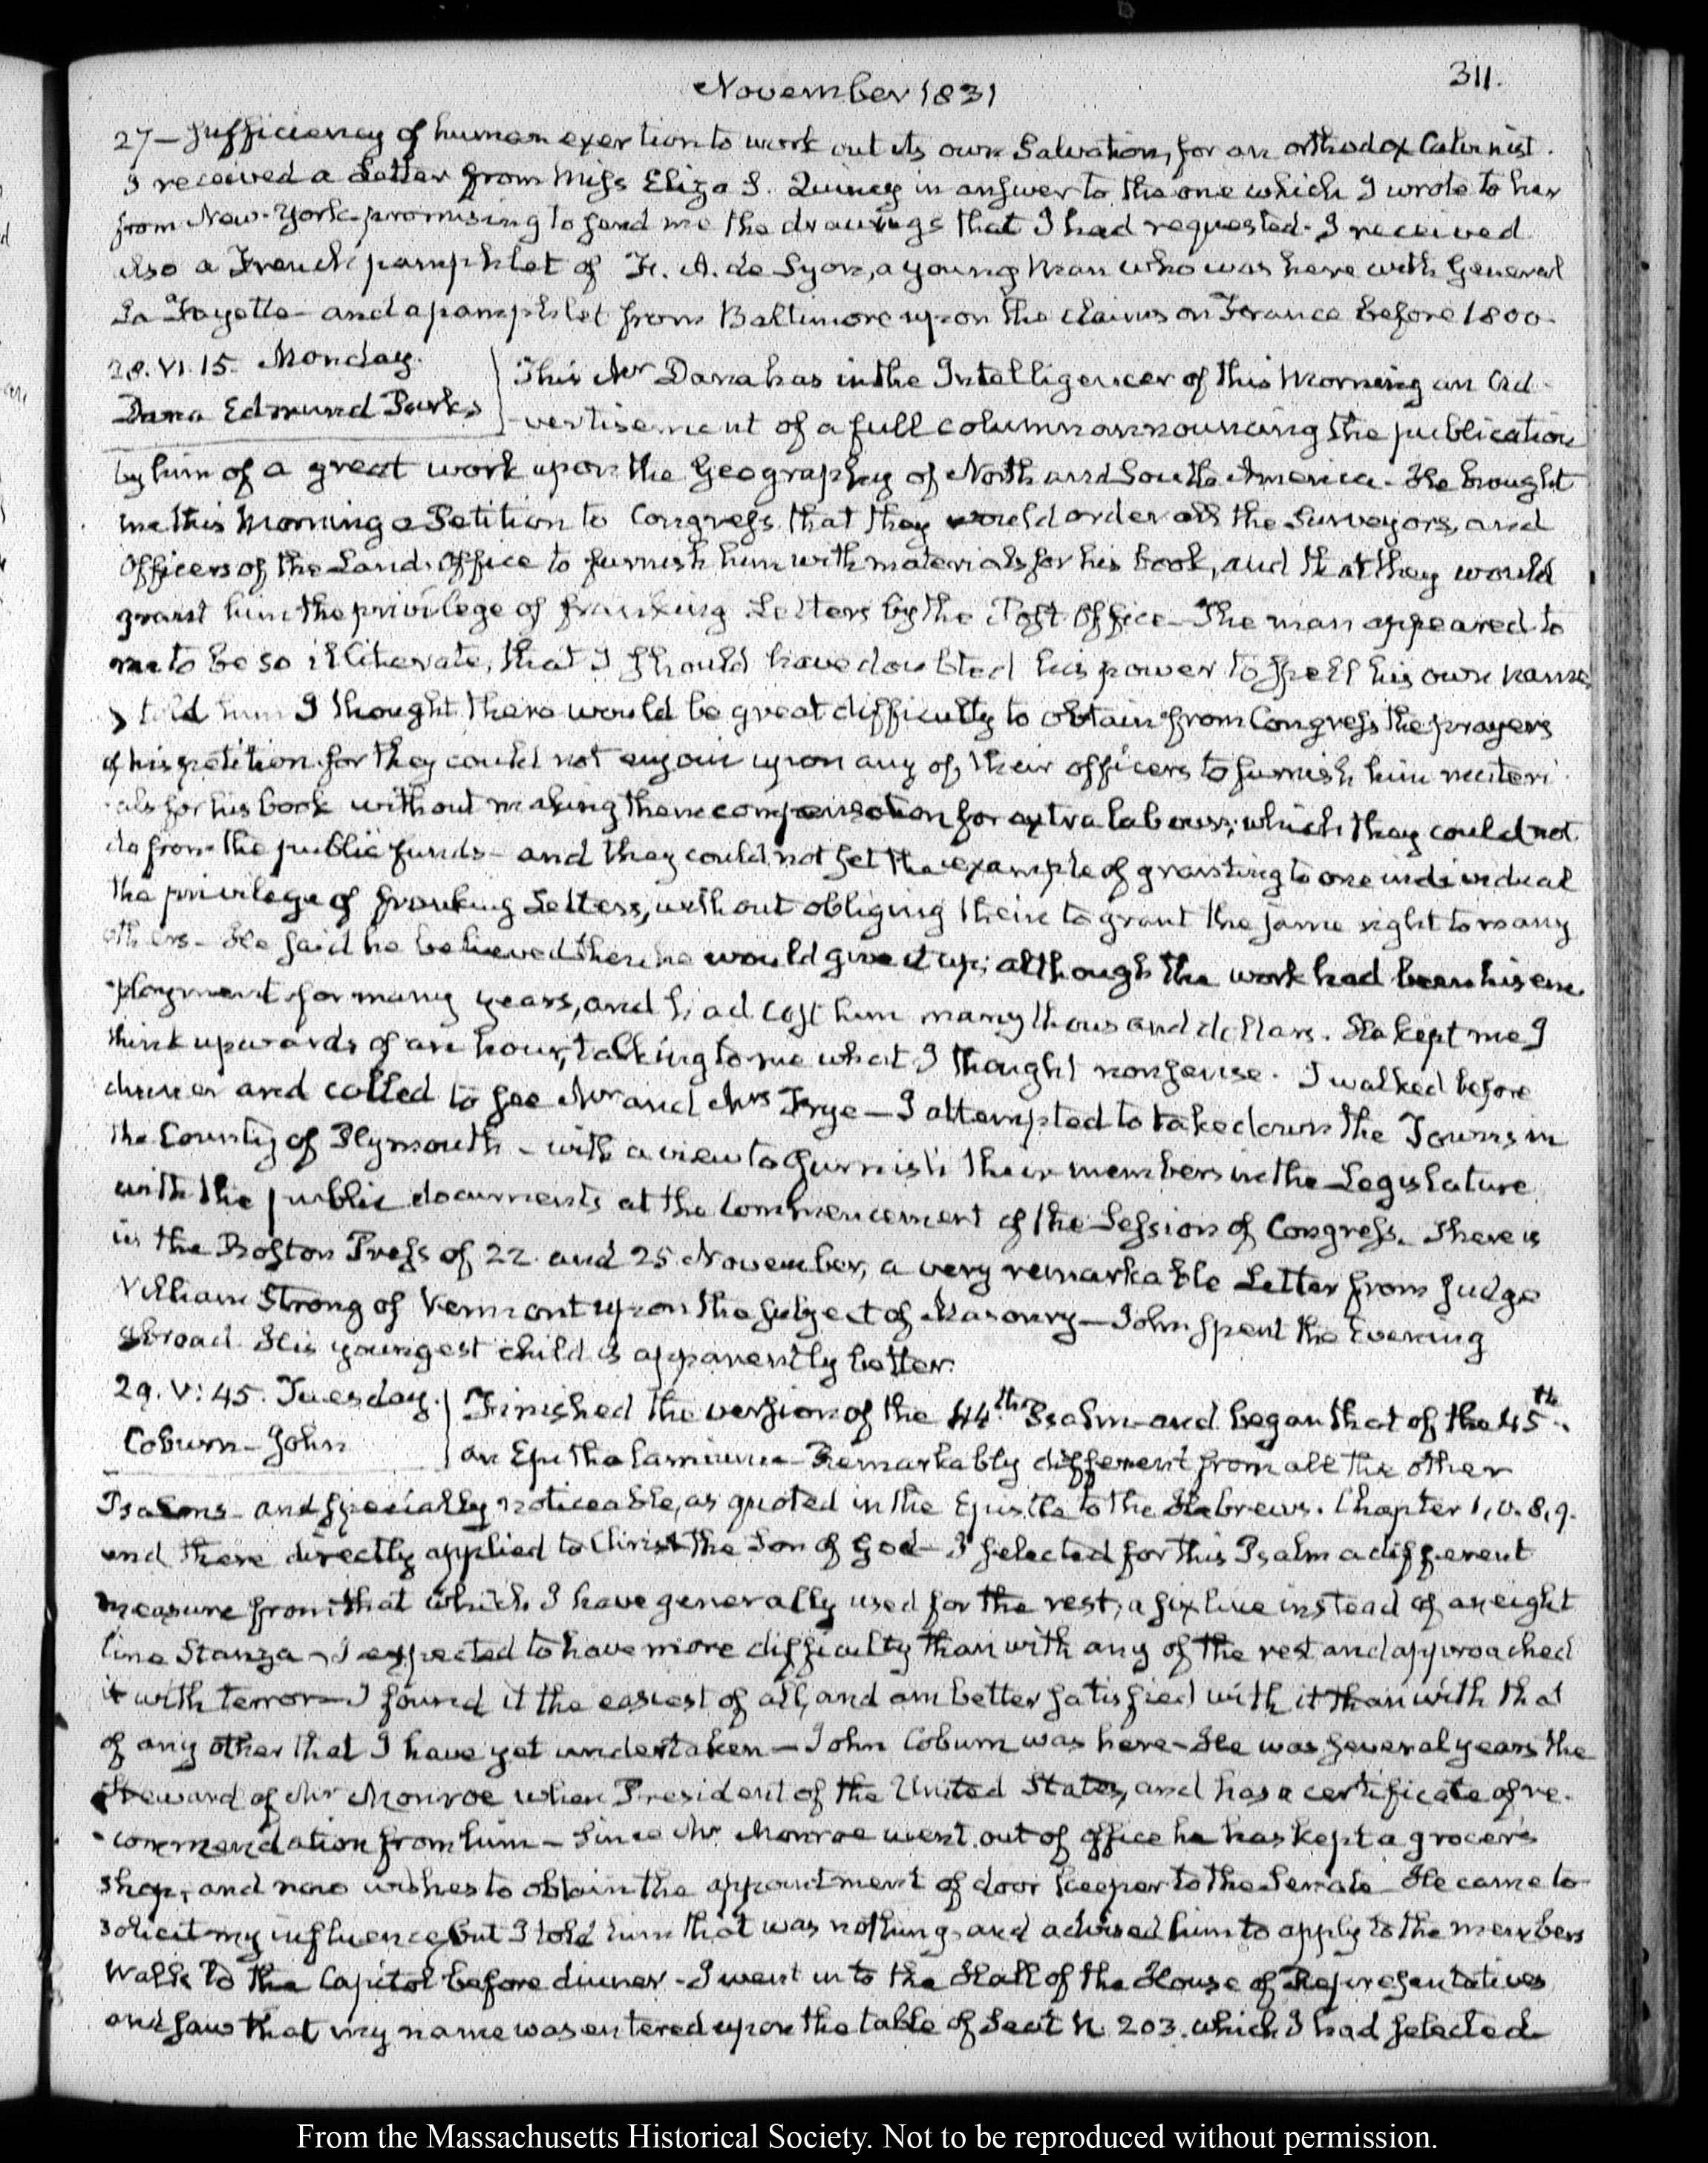 November 1831
311.
27 — sufficiency of human exertion to work out its own Salvation, for an orthodox Calvinist.
I received a Letter from Miss Eliza S. Quincy in answer to the one which I wrote to her
from New-York promising to send me the drawings that I had requested. I received
also a French pamphlet of F. A. de Syon, a young man who was here with General
La Fayette — and a pamphlet from Baltimore upon the claims on France before 1800.
28. VI. 15. Monday.
Dana Edmund Parks
This Mr Dana has in the Intelligencer of this Morning an ad-
-vertisement of a full column announcing the publication
by him of a great work upon the Geography of North and South America. He brought
me this Morning a Petition to Congress that they would order all the Surveyors, and
Officers of the Land-Office to furnish him with materials for his book, and that they would
grant him the privilege of franking Letters by the Post Office — The man appeared to
me to be so illiterate, that I should have doubted his power to spell his own name
I told him I thought there would be great difficulty to obtain from Congress the prayers
of his petition for they could not enjoin upon any of their officers to furnish him materi-
-als for his book without making them compensation for extra labour; which they could not
do from the public funds — and they could not set the example of granting to one individual
the privilege of franking Letters, without obliging them to grant the same right to many
others — He said he believed then he would give it up; although the work had been his em-
-ployment for many years, and had cost him many thousand dollars. He kept me I
think upwards of an hour, talking to me what I thought nonsense. I walked before
dinner and called to see Mr and Mrs Frye — I attempted to take down the Towns in
the County of Plymouth — with a view to furnish their members in the Legislature
with the public documents at the Commencement of the Session of Congress. There is
in the Boston Press of 22 and 25 November, a very remarkable Letter from Judge
William Strong of Vermont upon the subject of Masonry — John spent the Evening
abroad. His youngest child is apparently better.
29. V: 45. Tuesday.
Coburn — John
Finished the version of the 44th Psalm and began that of the 45th.
an Epithalamium — Remarkably different from all the other
Psalms — and specially noticeable, as quoted in the Epistle to the Hebrews. Chapter 1, v. 8, 9.
and there directly applied to Christ the Son of God — I selected for this Psalm a different
measure from that which I have generally used for the rest; a six line instead of an eight
line Stanza — I expected to have more difficulty than with any of the rest and approached
it with terror — I found it the easiest of all, and am better satisfied with it than with that
of any other that I have yet undertaken — John Coburn was here — He was several years the
Steward of Mr Monroe when President of the United States, and has a certificate of re-
-commendation from him — Since Mr Monroe went out of office he has kept a grocer's
shop, and now wishes to obtain the appointment of door keeper to the Senate — He came to
solicit my influence, but I told him that was nothing and advised him to apply to the members
Walk to the Capitol before dinner — I went in to the Hall of the House of Representatives
and saw that my name was entered upon the table of Seat N. 203. which I had selected
From the Massachusetts Historical Society. Not to be reproduced without permission.